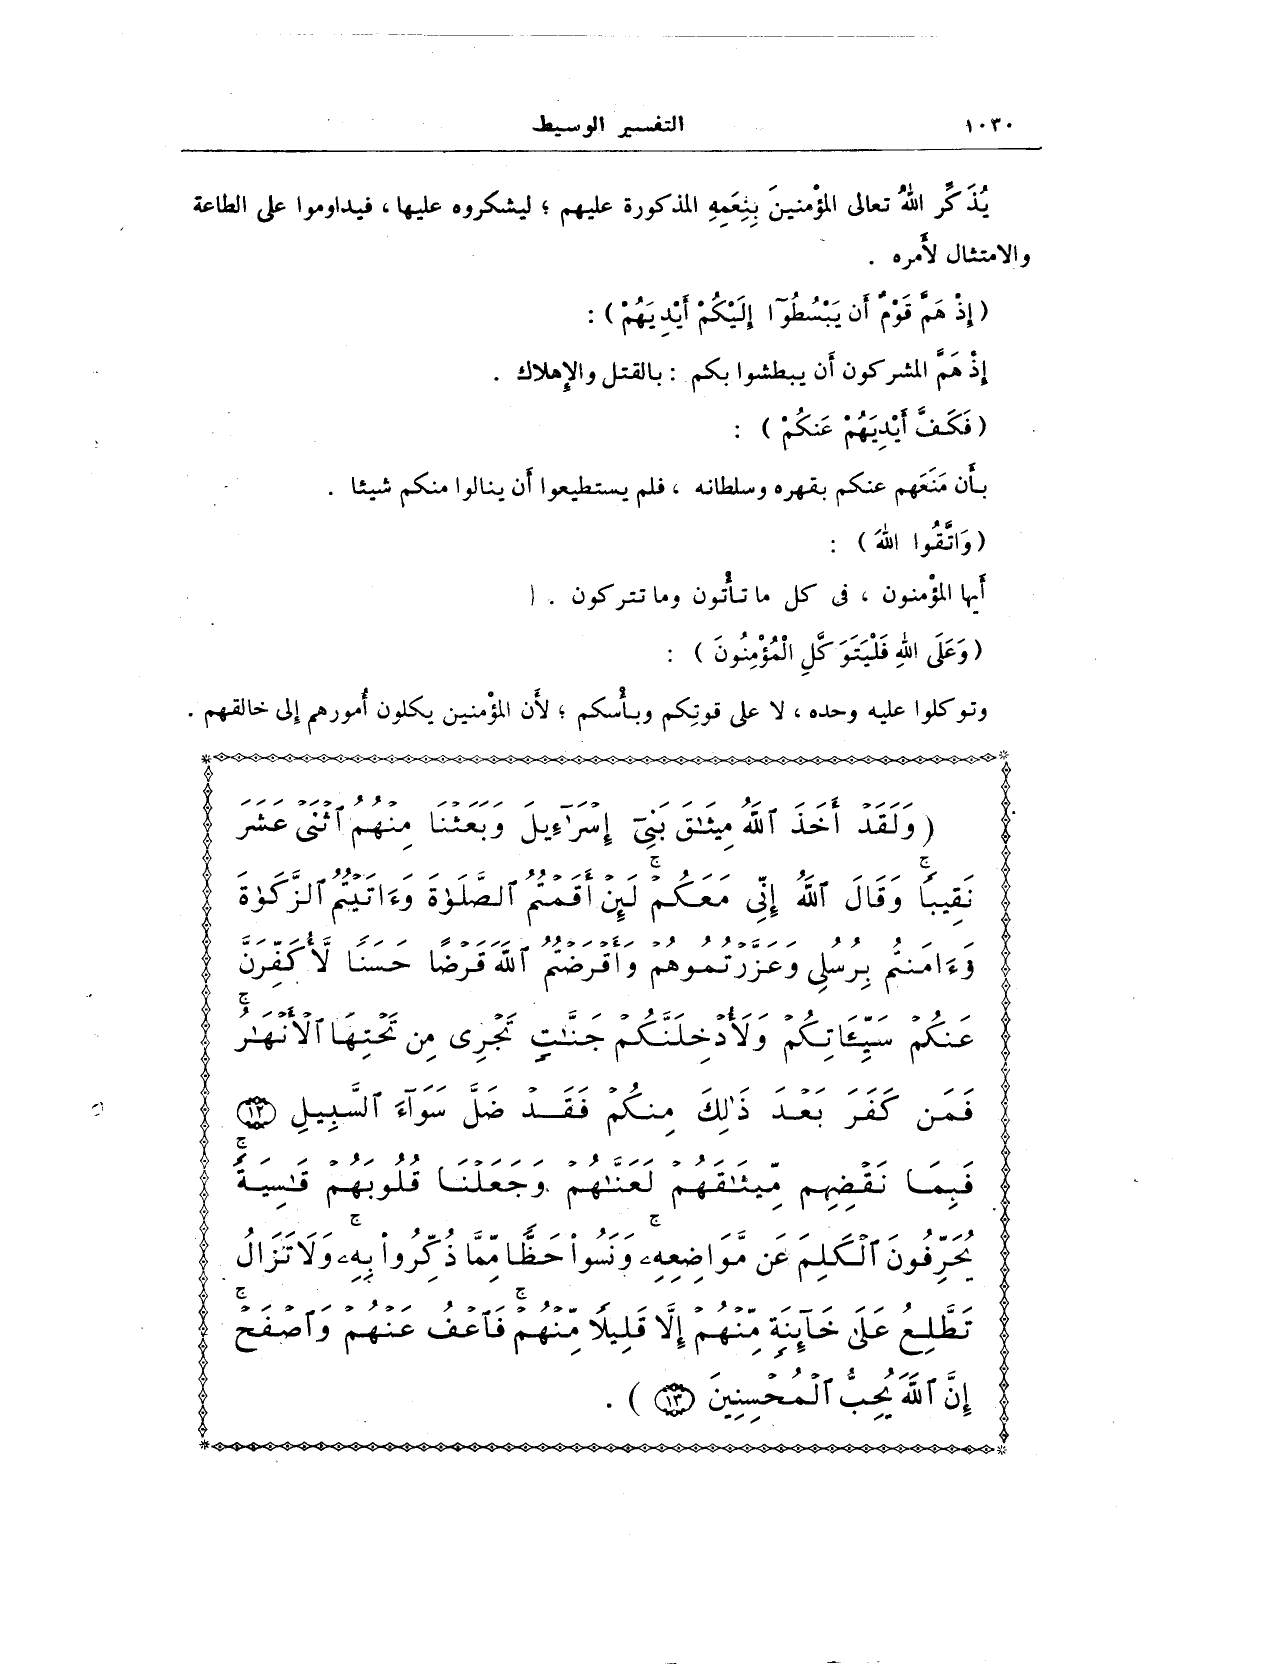 ١٠٣٠
التفسير الوسيط
يُذَكِّر اللهُ تعالى المؤْمنينَ بِنِعَمِهِ المذكورة عليهم ؛ ليشكروه عليها ، فيداوموا على الطاعة
والامتثال لأَمره .
( إِذْ هَمَّ قَوْمٌ أَن يَبْسُطُوٓا إِلَيْكُمْ أَيْدِيَهُمْ ) :
إِذْ هَمَّ المشركون أَن يبطشوا بكم : بالقتل والإِهلاك .
( فَكَفَّ أَيْدِيَهُمْ عَنكُمْ ) :
بأَن مَنَعَهم عنكم بقهره وسلطانه ، فلم يستطيعوا أَن ينالوا منكم شيئا .
( وَاتَّقُوا اللهَ ) :
أَيها المؤْمنون ، فى كل ما تأْتون وما تتركون .
( وَعَلَى اللهِ فَلْيَتَوَكَّلِ الْمُؤْمِنُونَ ) :
وتوكلوا عليه وحده ، لا على قوتِكم وبأْسكم ؛ لأَن المؤْمنين يكلون أُمورهم إلى خالقهم .
( وَلَقَدْ أَخَذَ ٱللَّهُ مِيثَٰقَ بَنِىٓ إِسْرَٰٓءِيلَ وَبَعَثْنَا مِنْهُمُ ٱثْنَىْ عَشَرَ
نَقِيبًاۖ وَقَالَ ٱللَّهُ إِنِّى مَعَكُمْۖ لَئِنْ أَقَمْتُمُ ٱلصَّلَوٰةَ وَءَاتَيْتُمُ ٱلزَّكَوٰةَ
وَءَامَنتُم بِرُسُلِى وَعَزَّرْتُمُوهُمْ وَأَقْرَضْتُمُ ٱللَّهَ قَرْضًا حَسَنًا لَّأُكَفِّرَنَّ
عَنكُمْ سَيِّـَٔاتِكُمْ وَلَأُدْخِلَنَّكُمْ جَنَّٰتٍ تَجْرِى مِن تَحْتِهَا ٱلْأَنْهَٰرُۚ
فَمَن كَفَرَ بَعْدَ ذَٰلِكَ مِنكُمْ فَقَدْ ضَلَّ سَوَآءَ ٱلسَّبِيلِ ١٢
فَبِمَا نَقْضِهِم مِّيثَٰقَهُمْ لَعَنَّٰهُمْ وَجَعَلْنَا قُلُوبَهُمْ قَٰسِيَةًۚ
يُحَرِّفُونَ ٱلْكَلِمَ عَن مَّوَاضِعِهِۦۚ وَنَسُوا۟ حَظًّا مِّمَّا ذُكِّرُوا۟ بِهِۦۚ وَلَا تَزَالُ
تَطَّلِعُ عَلَىٰ خَآئِنَةٍ مِّنْهُمْ إِلَّا قَلِيلًا مِّنْهُمْۚ فَٱعْفُ عَنْهُمْ وَٱصْفَحْۚ
إِنَّ ٱللَّهَ يُحِبُّ ٱلْمُحْسِنِينَ ١٣ ) .